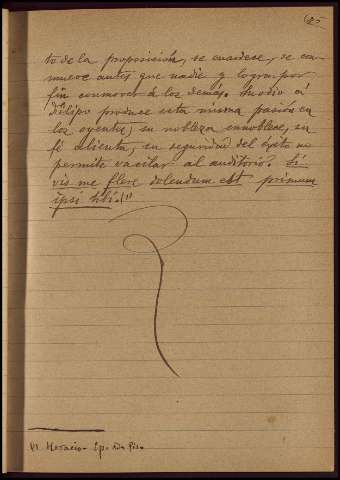 to de la proposición, se enardece, se con-
mueve antes que nadie y logra por
fin conmover a los demás. Su odio a
Filipo produce esta misma pasión en
los oyentes, su nobleza ennoblece, su
fé alienta, su seguridad del éxito no
permite vacilar al auditorio. Si
vis me flere dolendum est primum
ipsi tibi. (1)
(1) Horacio - Ep. ada Piso